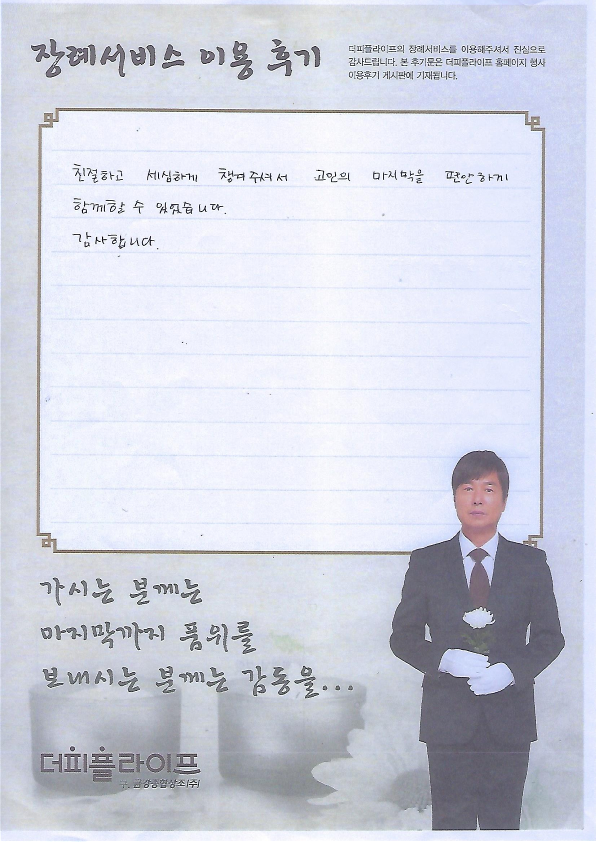 장례서비스 이용 후기
더피플라이프의 장례서비스를 이용해주셔서 진심으로
감사드립니다. 본 후기문은 더피플라이프 홈페이지 행사
이용후기 게시판에 기재됩니다.
친절하고 세심하게 챙겨주셔서 고인의 마지막을 편안하게
함께할 수 있었습니다.
감사합니다.
가시는 분께는
마지막까지 품위를
보내시는 분께는 감동을...
더피플라이프
구. 금강종합상조(주)